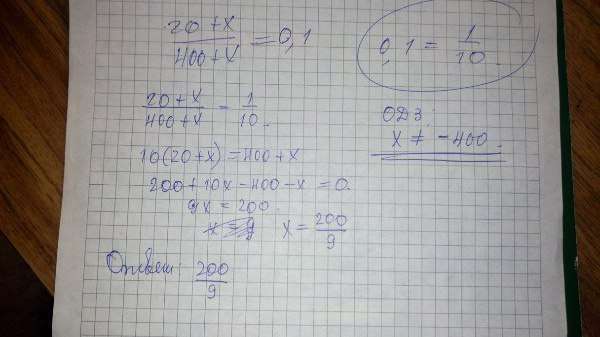 20+x/400+x = 0,1
0,1 = 1/10
20+x/400+x = 1/10.
ОДЗ:
x ≠ -400.
10(20+x) = 400+x
200+10x-400-x = 0.
9x = 200.
x = 200/9
Ответ: 200/9